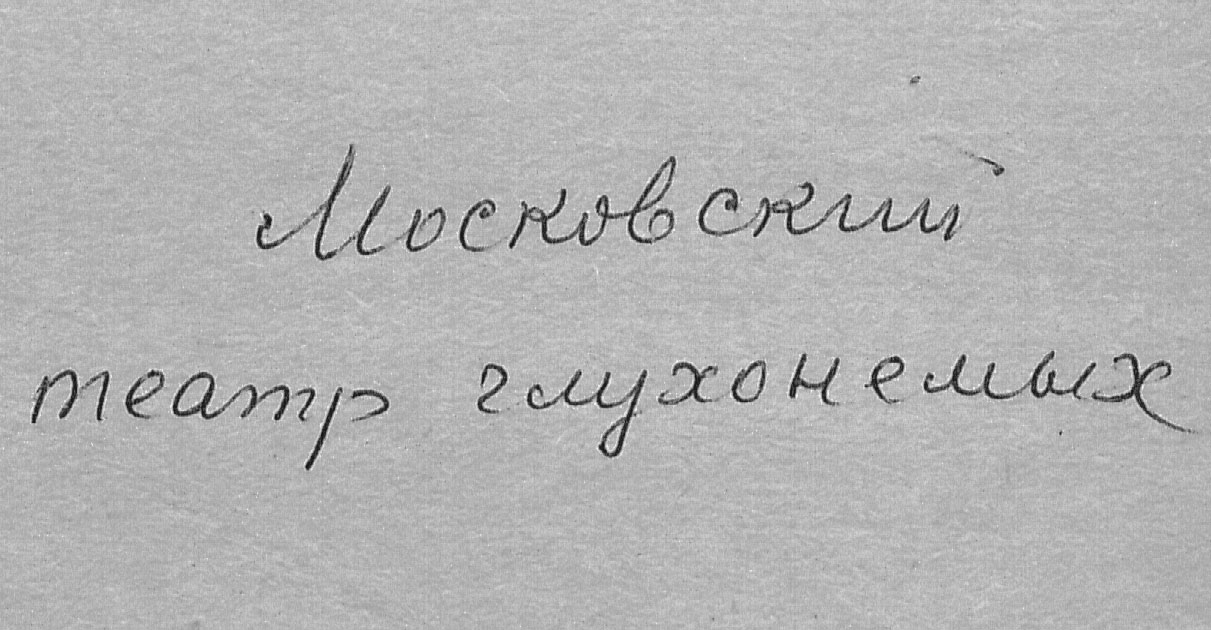 Московский
театр глухонемых